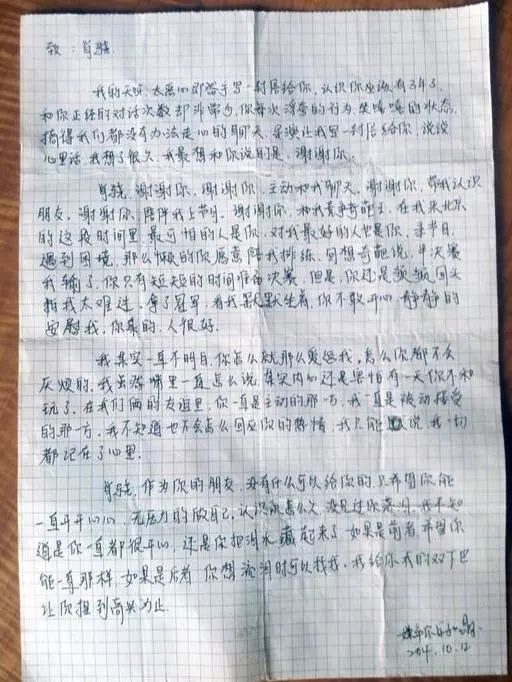 致：肖骁
我的天呀，太恶心即答于写一封信给你，认识你应该有3年了，
和你正经的对话次数却非常少，你每次浮夸的行为，笑嘻嘻的状态，
搞得我们都没有办法走心的聊天，导演让我写一封信给你，说说
心里话，我想了很久，我最想和你说的是，谢谢你。
肖骁，谢谢你，谢谢你，主动和我聊天，谢谢你，带我认识
朋友，谢谢你，陪伴我上节目，谢谢你，和我竞争奇葩王，在我来北京
的这段时间里，最可怕的人是你，对我最好的人也是你，录节目
遇到困境，那么懒的你愿意陪我排练，回想奇葩说，半决赛
我输了，你只有短短的时间准备决赛，但是，你还是频频回头
怕我太难过，拿了冠军，看我默默坐着，你不敢开心，静静的
安慰我，你真的，人很好。
我其实一直不明白，你怎么就那么爱惹我，怎么你都不会
厌烦的，我虽然嘴里一直怎么说，其实内心还是害怕有一天你不和
玩了，在我们俩的友谊里，你一直是主动的那一方，我一直是被动接受
的那一方，我不知道也不会怎么回应你的热情，我只能说，我一切
都记在了心里。
肖骁，作为你的朋友，没有什么可以给你的，只希望你能
一直开开心心，无压力的做自己，认识你怎么久，没见过你落泪，我不知
道是你一直都很开心，还是你把泪水藏起来了，如果是前者，希望你
能一直那样，如果是后者，你想流泪时可以找我，我给你我的双下巴
让你捏到高兴为止。
2014.10.12